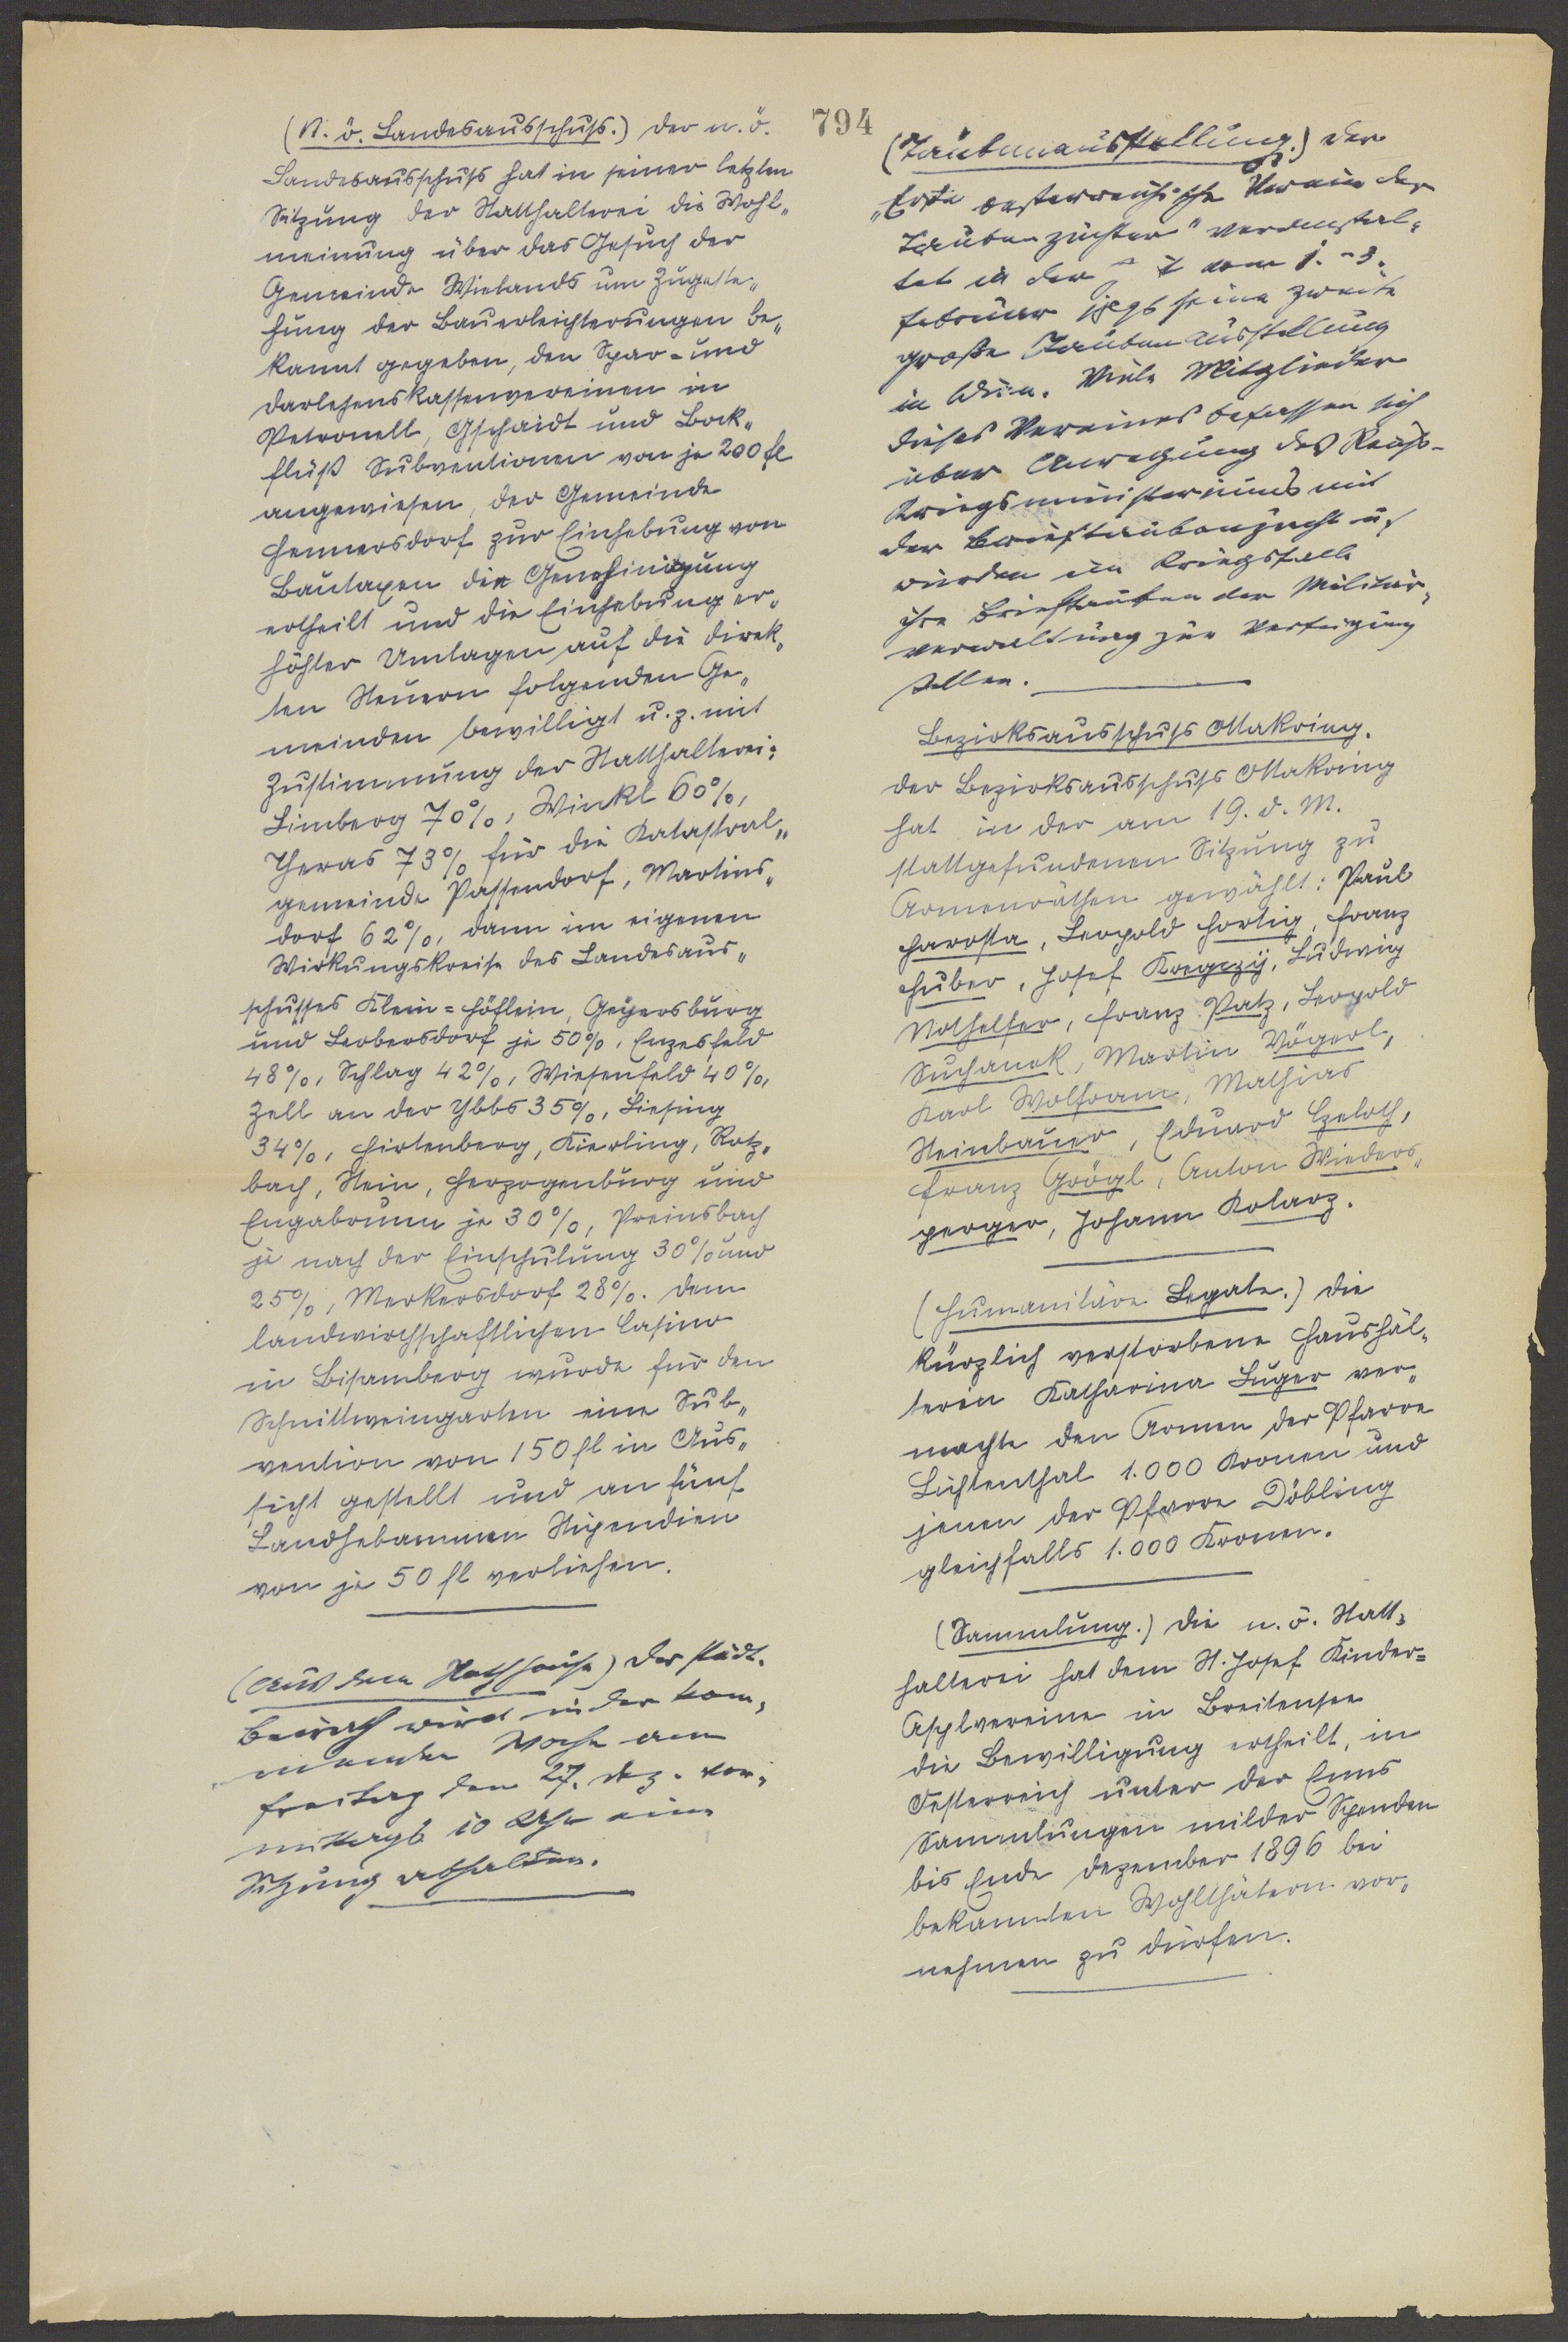 794
(N. ö. Landesausschuss.) Der n. ö.
Landesausschuss hat in seiner letzten
Sitzung der Statthalterei die Wohl„
meinung über das Gesuch der
Gemeinde Wielands um Zugeste„
hung der Bauerleichterungen be„
kannt gegeben, den Spar- und
Darlehenskassenvereinen in
Petronell, Gschaidt und Bock„
fließ Subventionen von je 200 fl
angewiesen, der Gemeinde
Hennersdorf zur Einhebung von
Bautaxen die Genehmigung
ertheilt und die Einhebung er„
höhter Umlagen auf die direk„
ten Steuern folgenden Ge„
meinden bewilligt u. z. mit
Zustimmung der Statthalterei:
Limberg 70%, Winkl 60%,
Theras 73% für die Katastral„
gemeinde Passendorf, Martins„
dorf 62%, dann im eigenen
Wirkungskreise des Landesaus„
schusses Klein=Höflein, Geyersburg
und Leobersdorf je 50%, Enzesfeld
48%, Schlag 42%, Wiesenfeld 40%,
Zell an der Ybbs 35%, Liesing
34%, Hirtenberg, Kierling, Rotz„
bach, Stein, Herzogenburg und
Engabrunn je 30%, Preinsbach
je nach der Einschulung 30% und
25%, Merkersdorf 28%. Dem
landwirthschaftlichen Casino
in Bisamberg wurde für den
Schnittweingarten eine Sub„
vention von 150 fl in Aus„
sicht gestellt und an fünf
Landhebammen Stipendien
von je 50 fl verliehen.
(Aus dem Rathhause) Der städt.
Beirath wird in der kom„
menden Woche am
Freitag den 27. Dez. vor„
mittags 10 Uhr eine
Sitzung abhalten.
(Taubenausstellung.) Der
„Erste oesterreichische Verein der
Taubenzüchter" veranstal„
tet in der vom 1. - 3.
Februar seine zweite
große Taubenausstellung
in Wien. Viele Mitglieder
dieses Vereines befassen sich
über Anregung des Reichs-
Kriegsministeriums mit
der Brieftaubenzucht u.
würden im Kriegsfalle
ihre Brieftauben der Militär„
verwaltung zur Verfügung
stellen.
Bezirksausschuss Ottakring.
Der Bezirksausschuss Ottakring
hat in der am 19. d. M.
stattgefundenen Sitzung zu
Armenräthen gewählt: Paul
Harosta, Leopold Hortig, Franz
Huber, Josef Kregczy, Ludwig
Nothelfer, Franz Patz, Leopold
Suchanek, Martin Vögerl,
Karl Wolfram, Mathias
Steinbauer, Eduard Czeloth,
Franz Grögl, Anton Wieders„
perger, Johann Kolarz.
(Humanitäre Legate.) Die
kürzlich verstorbene Haushäl„
terin Katharina Luger ver„
machte den Armen der Pfarre
Lichtenthal 1.000 Kronen und
jenen der Pfarre Döbling
gleichfalls 1.000 Kronen.
(Sammlung.) Die n. ö. Statt„
halterei hat dem St. Josef Kinder=
Asylvereine in Breitensee
die Bewilligung ertheilt, in
Oesterreich unter der Enns
Sammlungen milder Spenden
bis Ende Dezember 1896 bei
bekannten Wohlthätern vor„
nehmen zu dürfen.